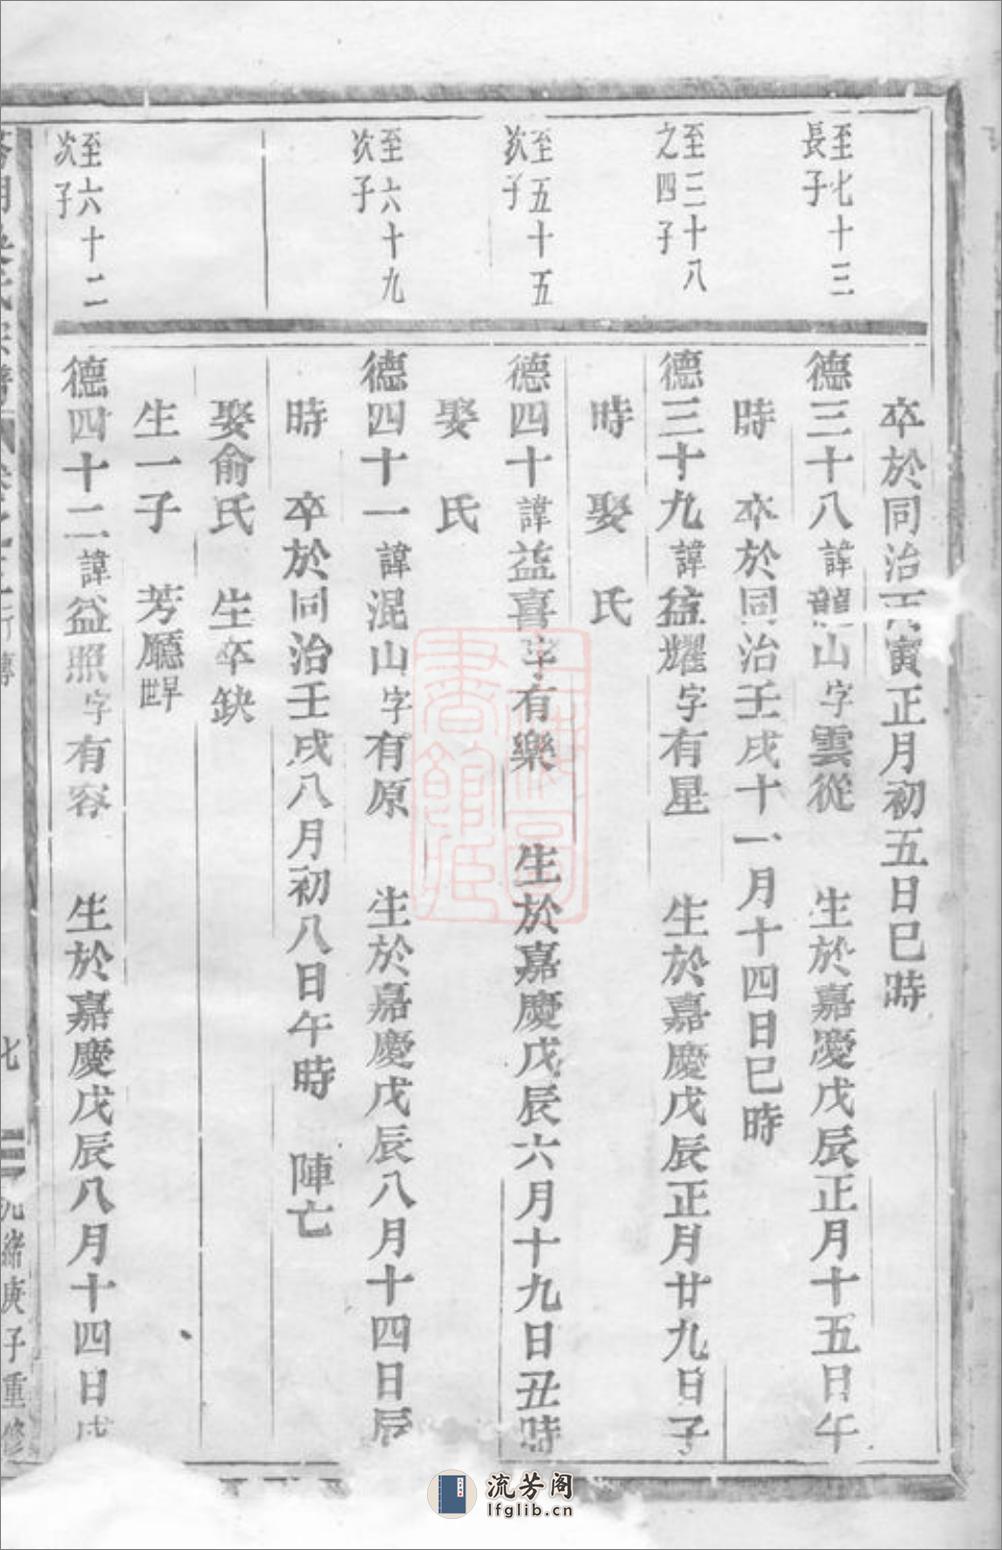 至七十三
長子
至三十八
之四子
至五十五
次子
至六十九
次子
至六十二
次子
卒於同治丙寅正月初五日巳時
德三十八諱龍山字雲從 生於嘉慶戊辰正月十五日午
時 卒於同治壬戌十一月十四日巳時
德三十九諱益耀字有星 生於嘉慶戊辰正月廿九日子
時 娶 氏
德四十諱益喜字有樂 生於嘉慶戊辰六月十九日丑時
娶 氏
德四十一諱混山字有原 生於嘉慶戊辰八月十四日辰
時 卒於同治壬戌八月初八日午時 陣亡
娶俞氏 生卒缺
生一子 芳廳早世
德四十二諱益照字有容 生於嘉慶戊辰八月十四日戌
氏宗譜
七
光緒庚子重修
上海圖書館藏
流芳阁
lfglib.cn